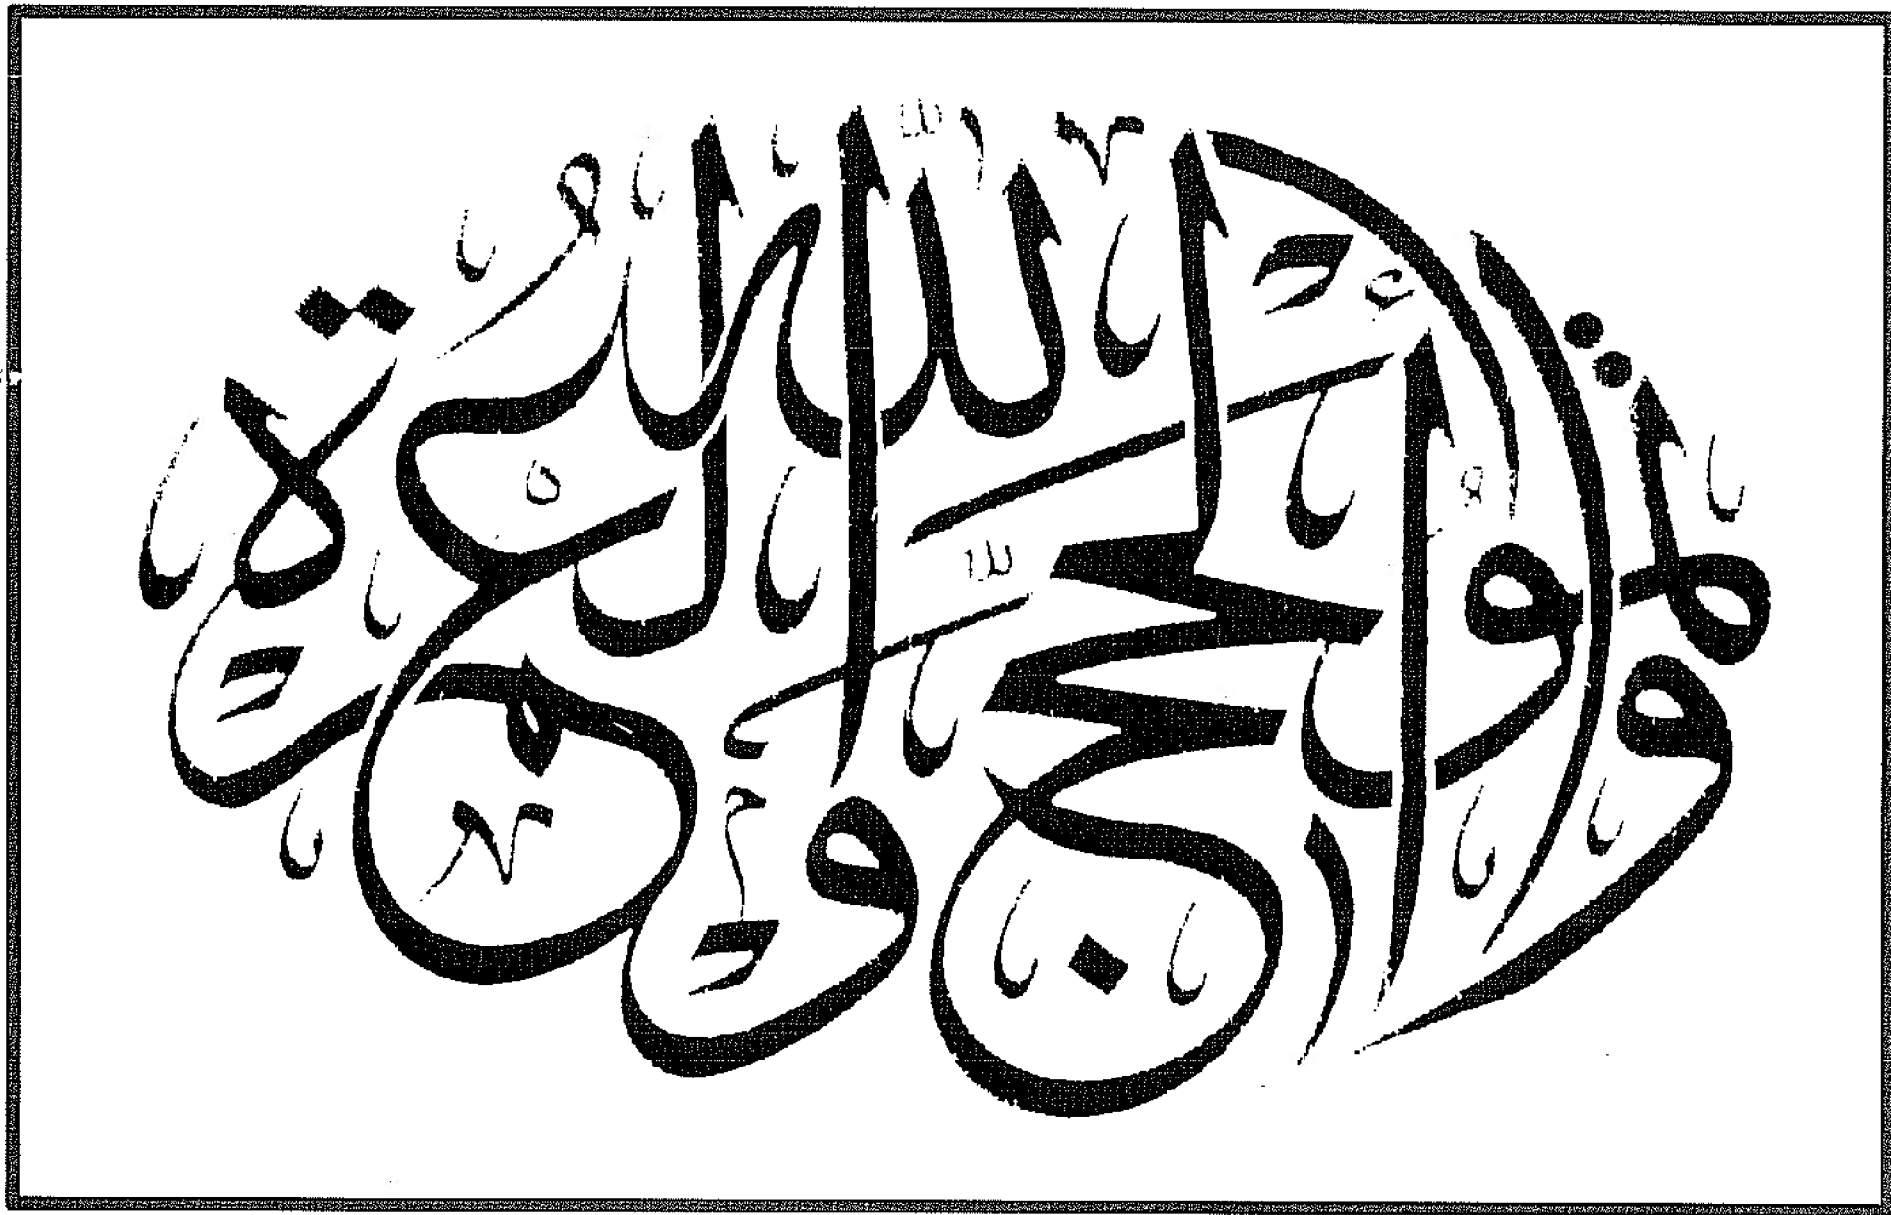 وأتموا الحج والعمرة لله